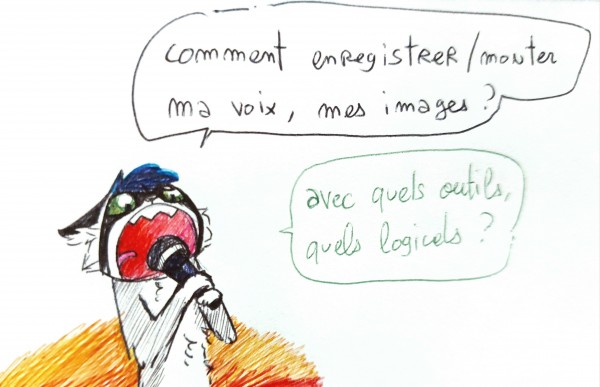 comment enregistrer/monter
ma voix, mes images?
avec quels outils,
quels logiciels ?